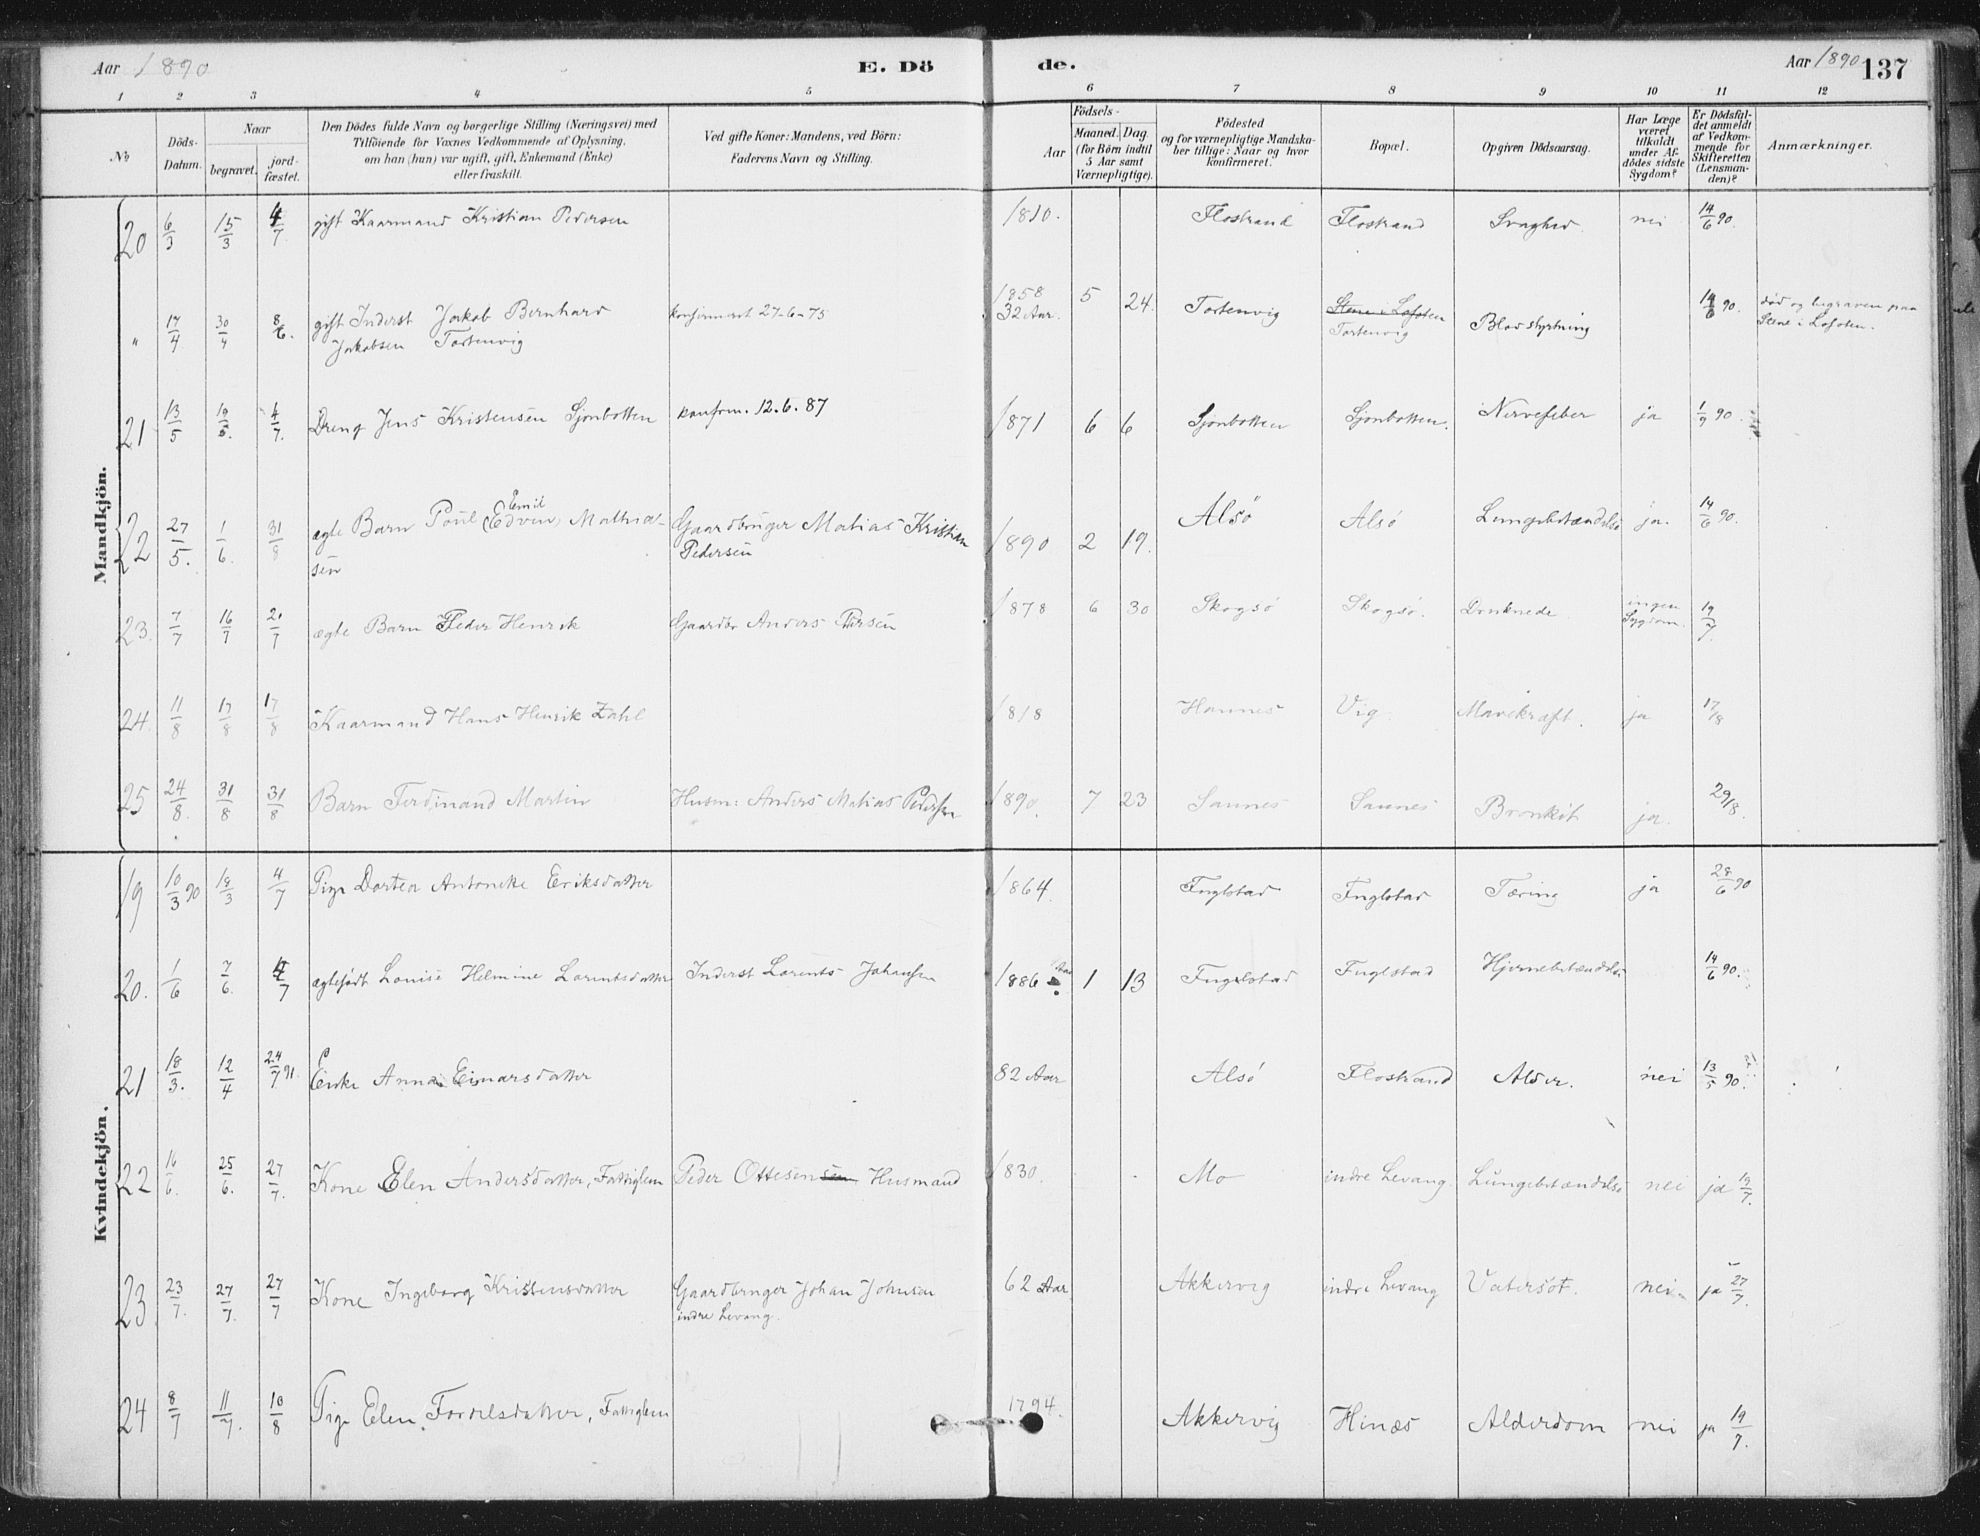 Aar 1890 E. Dö de. Aar 1890 137
1 2 3 4 5 6 7 8 9 10 11 12
No
Döds-Datum.
Naar
begravet.
jord-fæstet.
Den Dödes fulde Navn og borgerlige Stilling (Næringsvei) med
Tilföiende for Voxnes Vedkommende af Oplysning,
om han (hun) var ugift, gift, Enkemand (Enke)
eller fraskilt.
Ved gifte Koner: Mandens, ved Börn:
Faderens Navn og Stilling.
Födsels-
Aar
Maaned. Dag
(for Børn indtil
5 Aar samt
Værnepligtige).
Födested
og for værnepligtige Mandska-
ber tillige: Naar og hvor
konfirmeret.
Bopæl.
Opgiven Dödsaarsag.
Har Læge
været
tilkaldt
under Af-
dödes sidste
Sygdom?
Er Dødsfal-
det anmeldt
af Vedkom-
mende for
Skifteretten
(Lensman-
den)?
Anmærkninger.
Mandkjön.
20 6/3 15/3 4/7 gift Kaarmand Kristian Pedersen 1810. Flostrand Flostrand Svaghed nei 14/6 90.
" 17/4 30/4 8/6. gift Inderst Jakob Bernhard konfirmeret 27-6-75 1858 5 24 Tortenvig Stene i Lofoten 14/6 90. død og begraven paa
Jakobsen Tortenvig 32 Aar. Tortenvig Blodstyrtning Stene i Lofoten.
21 13/5 19/5. 4/7. Dreng Jens Kristensen Sjonbotten konfirm. 12.6.87 1871 6 6 Sjonbotten Sjonbotten. Nervefeber ja 1/9 90.
Emil
22 27/5. 1/6. 31/8 ægte Barn Poul (Edvin) Mathia- Gaardbruger Matias Kristian 1890 2 19. Alsö Alsö Lungebetændelse ja. 14/6 90.
sen Pedersen
23. 7/7 16/7 20/7 ægte Barn Peder Henrik Gaardbr Anders Persen 1878 6 30 Skogsö Skogsö. Druknede ingen Sygdom. 19/7.
24. 11/8 17/8 17/8 Kaarmand Hans Henrik Zahl 1818 Hannes Vig Mavekræft. ja 17/8
25 24/8. 31/8 31/8 Barn Ferdinand Martin Husm: Anders Matias Pedersen 1890. 7 23 Saunes Saunes Bronkit ja. 29/8.
Kvindekjön.
19 10/3 90 18/3 4/7 Pige Dortea Antoneke Eriksdatter 1864. Fuglstad Fuglstad Tæring ja 28/6 90
20. 1/6 7/6. 4/7 ægtefødt Louise Helmine Lorentsdatter Inderst Lorents Johansen 1886 1 13 Fuglstad Fuglstad Hjernebetændelse 14/6 90.
21 18/3. 12/4 24/7 91. Enke Anna Einarsdatter 82 Aar Alsö Flostrand Alder. nei 13/5 90.
22 16/6. 25/6. 27/7. Kone Elen Andersdatter, Fattiglem Peder Ottesen Husmand 1830. Mo indre Levang. Lungebetændelse nei ja 19/7.
23. 23/7. 27/7. 27/7 Kone Ingeborg Kristensdatter Gaardbruger Johan Johnsen 62 Aar Akkervig indre Levang Vatersot. nei ja 27/7.
indre Levang.
24 8/7 11/7. 10/8 Pige Elen Tordelsdatter, Fattiglem 1794. Akkervig Hinæs Alderdom nei ja 19/7.